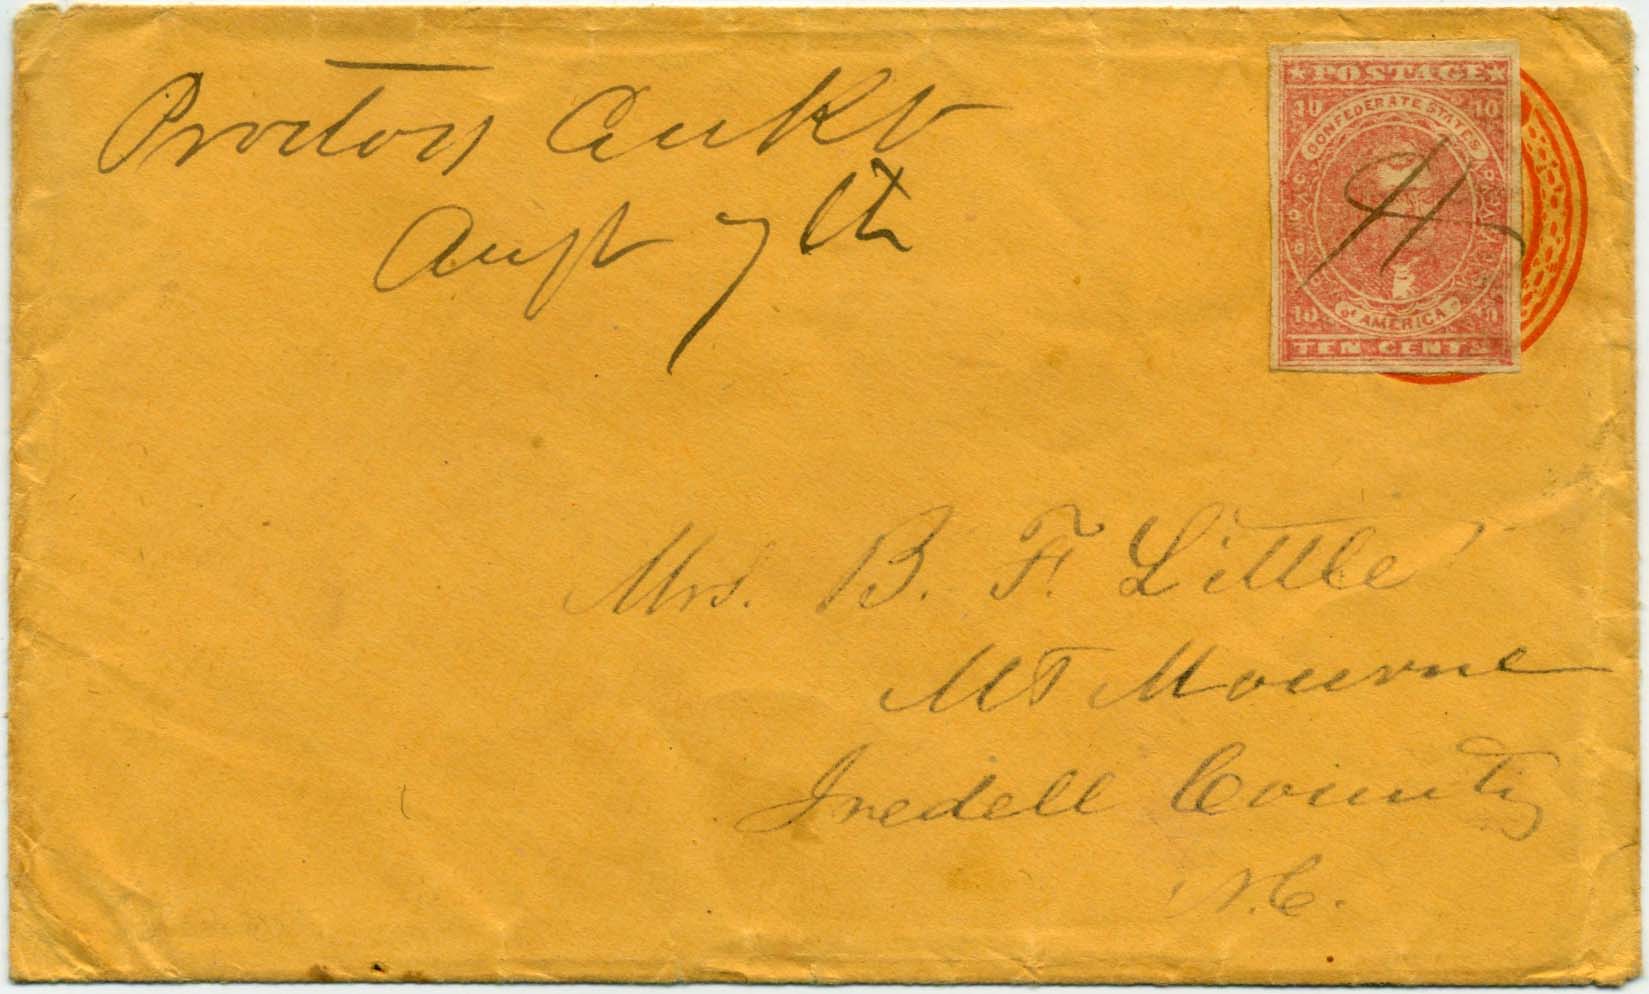 Augst 7th
★POSTAGE★
10 10
CONFEDERATE STATES
of AMERICA
10 10
TEN CENTS
Mrs. B. F. Little
Mt Mourne
Iredell County
N.C.